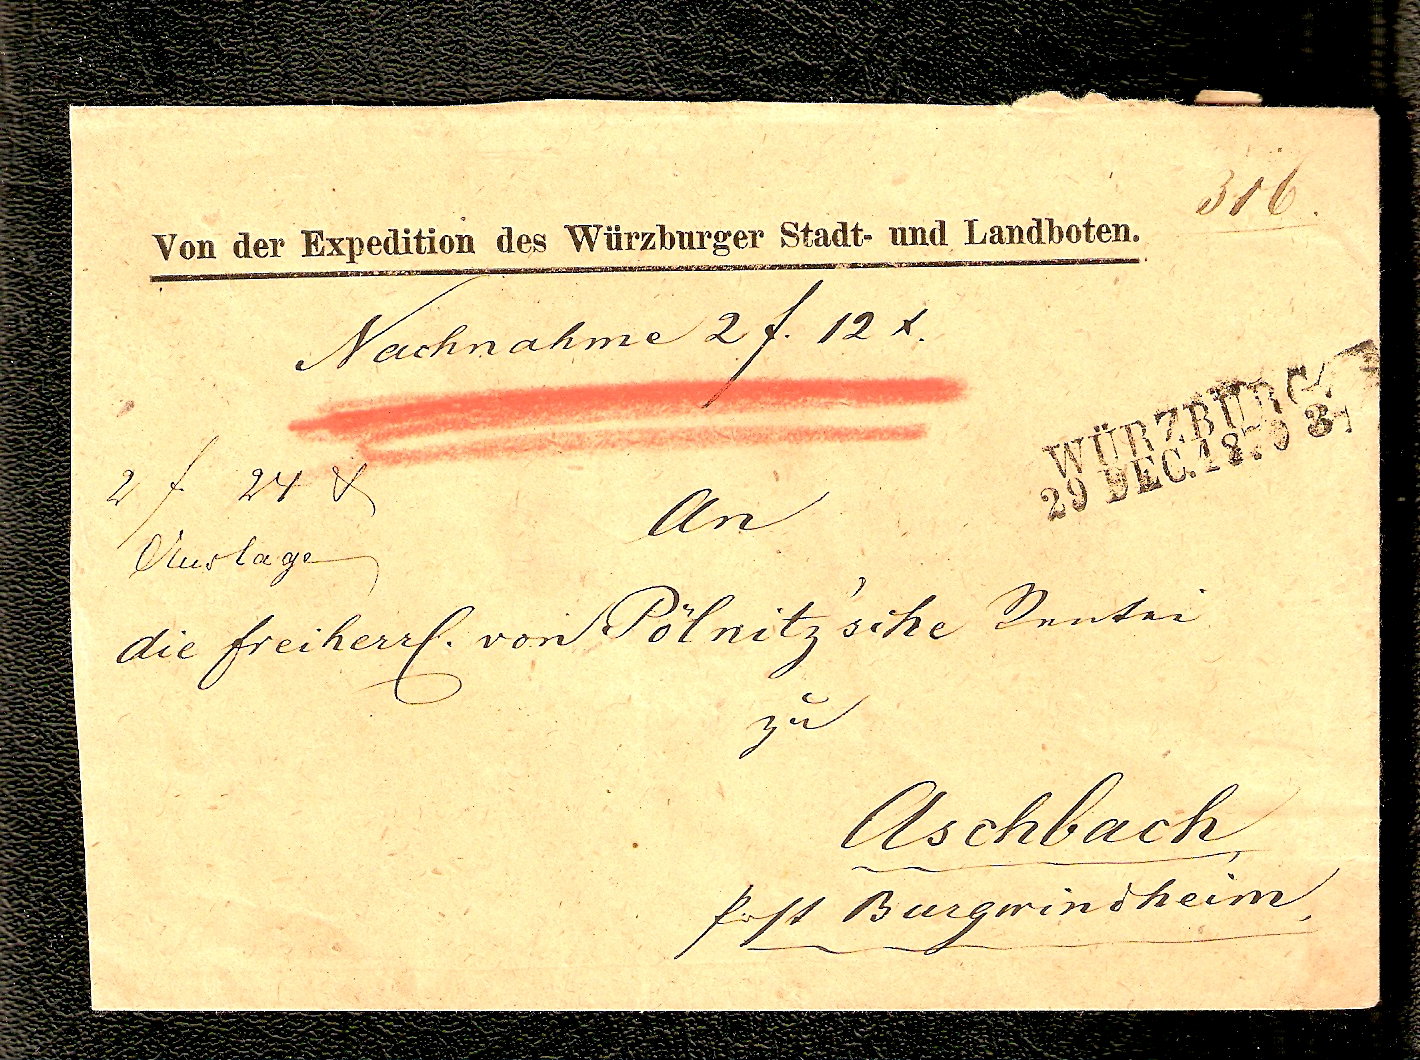 316.
Von der Expedition des Würzburger Stadt- und Landboten.
Nachnahme 2 f. 12 x.
WÜRZBURG
29 DEC. 1870
2 f 24 x
Auslage
An
die freiherrl. von Pölnitz'sche Rentei
zu
Aschbach,
Post Burgwindheim.